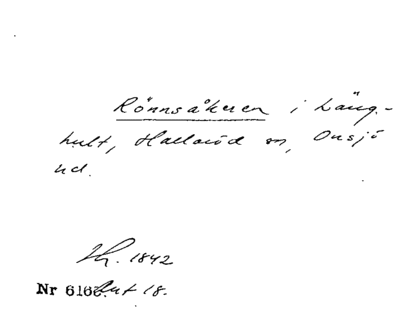 Rönnsåkren i Läng-
hult, Hallaröd sn, Onsjö
hd.
1842
Nr 616 18.